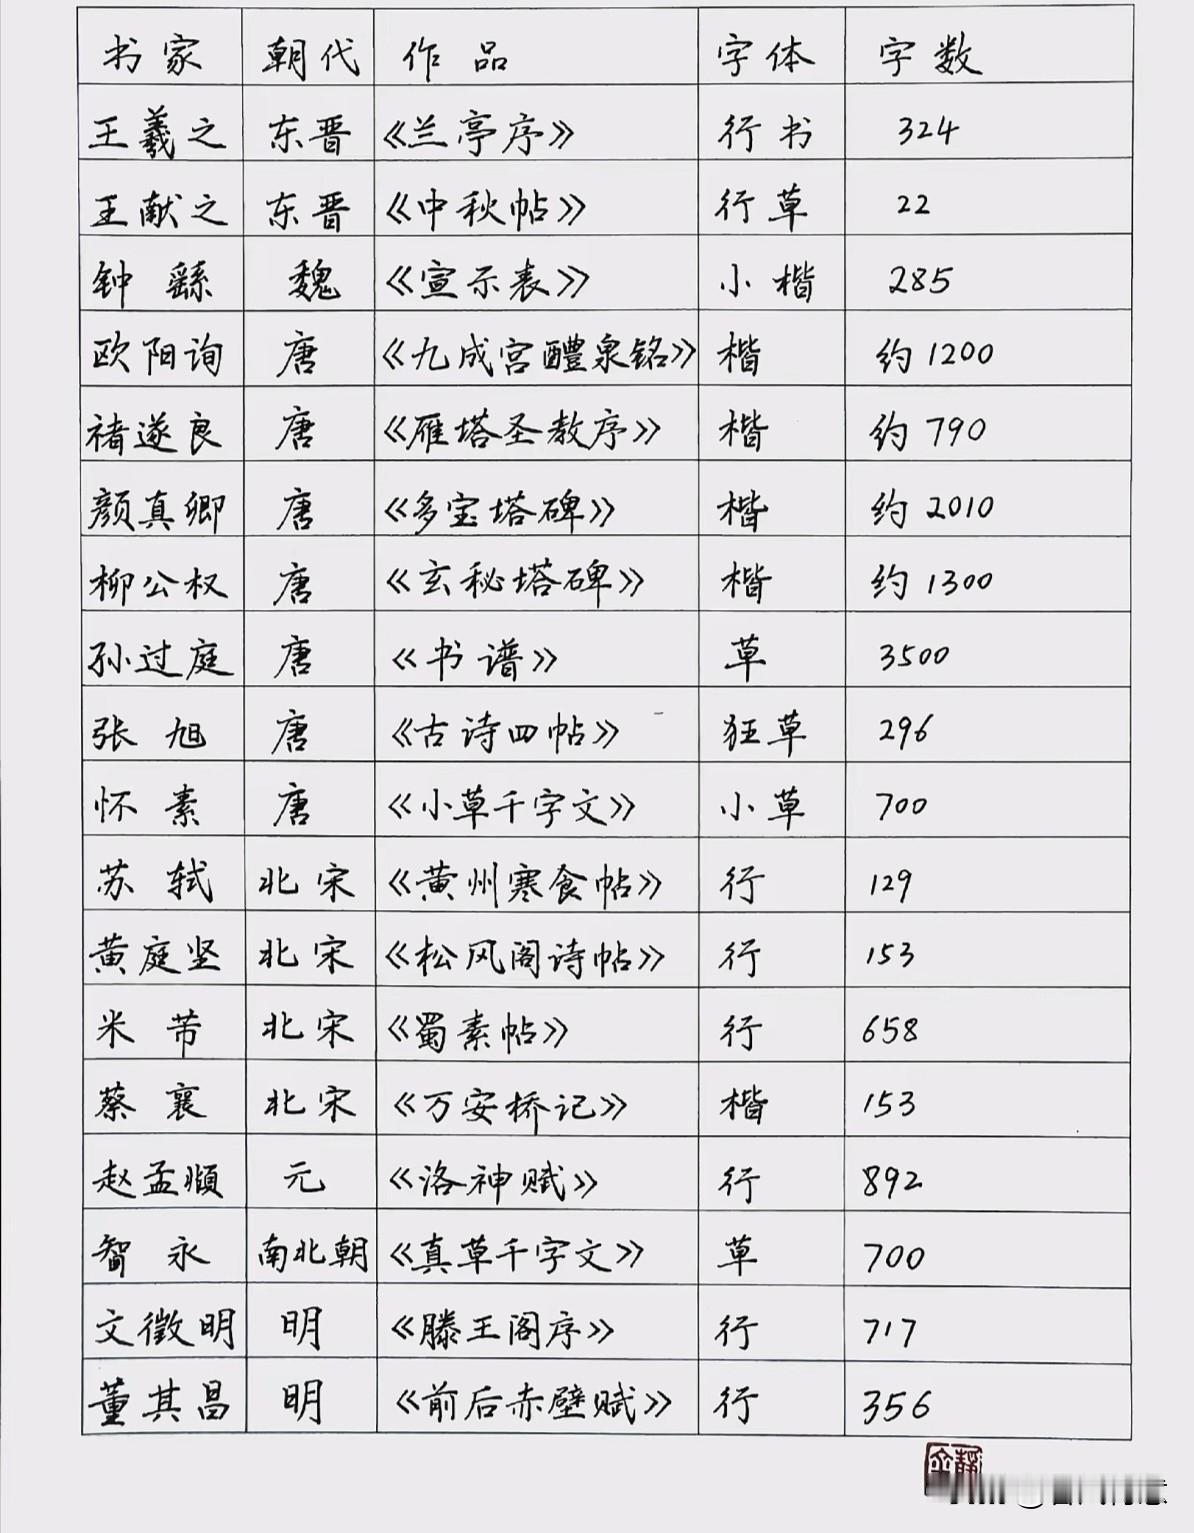 书家 朝代 作品 字体 字数
王羲之 东晋 《兰亭序》 行书 324
王献之 东晋 《中秋帖》 行草 22
钟繇 魏 《宣示表》 小楷 285
欧阳询 唐 《九成宫醴泉铭》 楷 约1200
褚遂良 唐 《雁塔圣教序》 楷 约790
颜真卿 唐 《多宝塔碑》 楷 约2010
柳公权 唐 《玄秘塔碑》 楷 约1300
孙过庭 唐 《书谱》 草 3500
张旭 唐 《古诗四帖》 狂草 296
怀素 唐 《小草千字文》 小草 700
苏轼 北宋 《黄州寒食帖》 行 129
黄庭坚 北宋 《松风阁诗帖》 行 153
米芾 北宋 《蜀素帖》 行 658
蔡襄 北宋 《万安桥记》 楷 153
赵孟頫 元 《洛神赋》 行 892
智永 南北朝 《真草千字文》 草 700
文徵明 明 《滕王阁序》 行 717
董其昌 明 《前后赤壁赋》 行 356